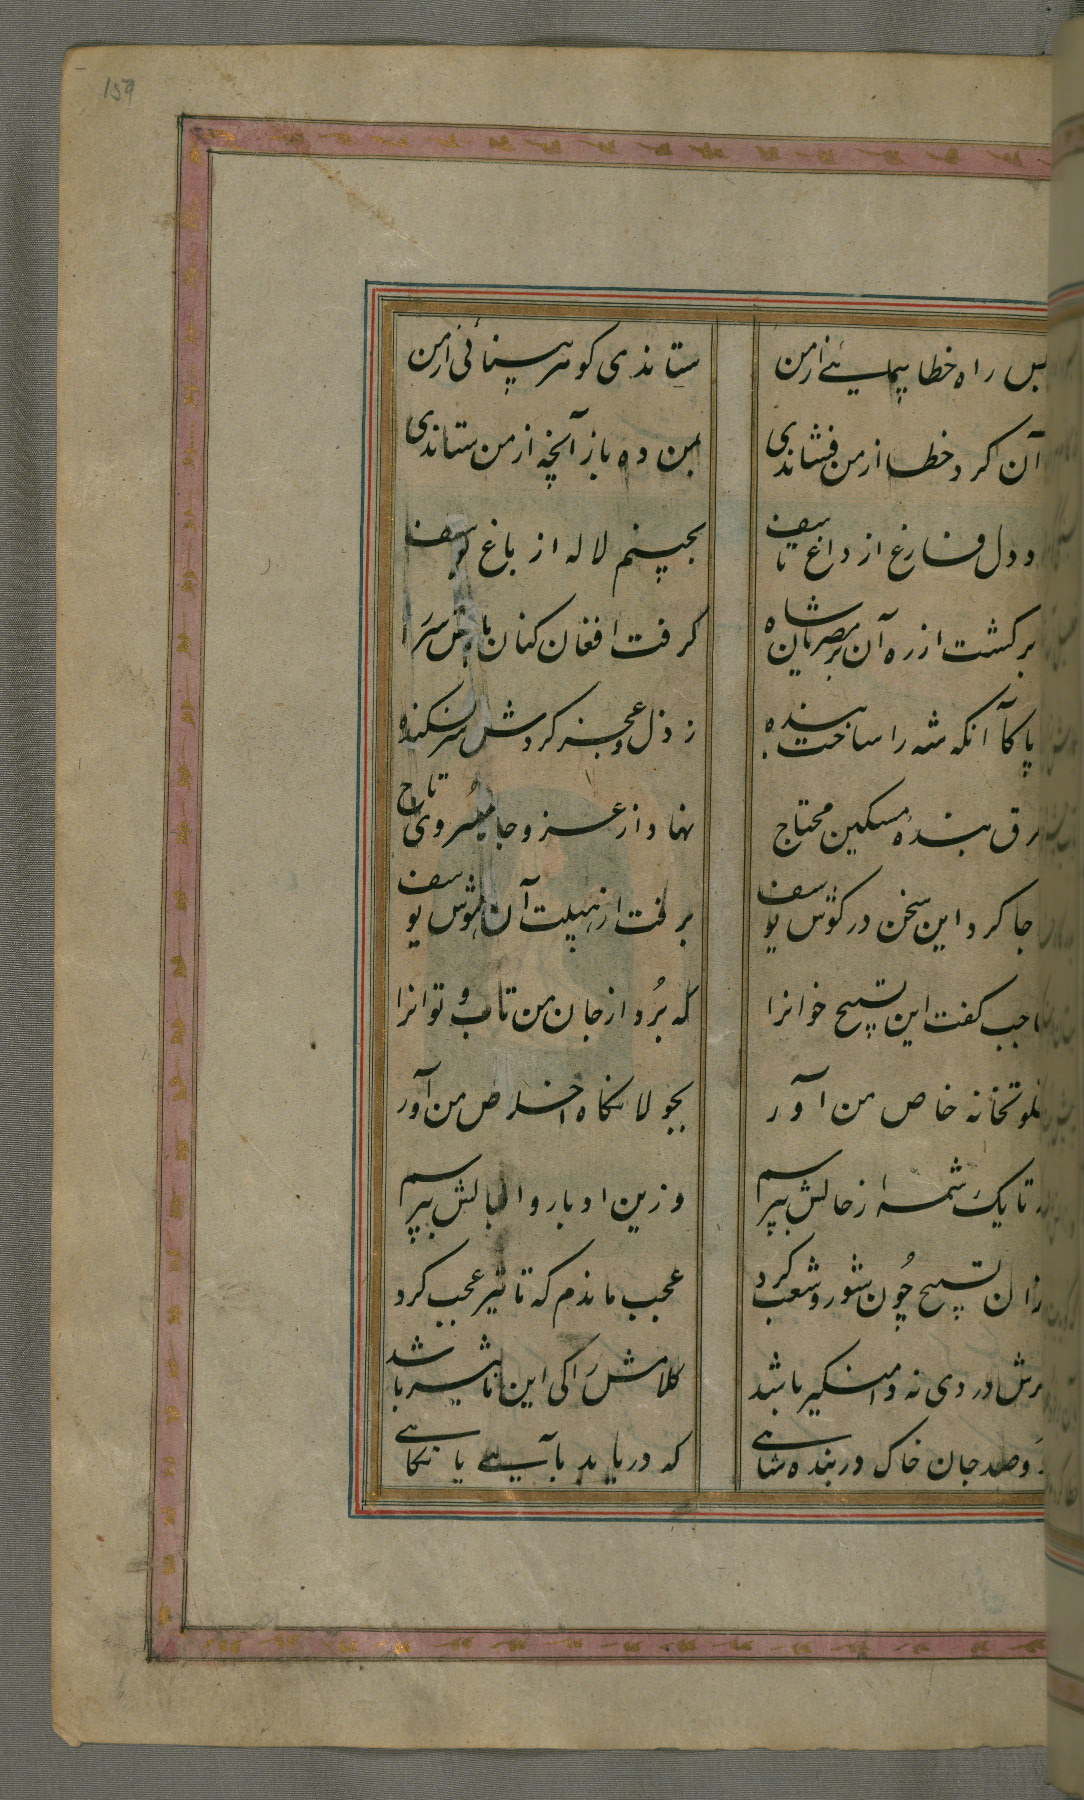 159
راه خطا پیمایی از من
ستاندی گوهر بینائی از من
آن گرد خطا از من فشاندی
بمن ده باز آنچه از من ستاندی
دل فارغ از داغ تاسف
بچینم لاله از باغ یوسف
برگشت از ره آن بر مصریان شاه
گرفت افغان کنان بازش سر راه
پاکا آنکه شه را ساخت بنده
ز ذل و عجز کردش سرفکنده
فرق بنده مسکین محتاج
نهاد از عز و جاه خسروی تاج
جا کرد این سخن در گوش یوسف
برفت از هیبت آن هوش یوسف
حاجب گفت این تسبیح خوانرا
که برد از جان من تاب و توانرا
بخلوتخانه خاص من آور
بجولانگاه اخلاص من آور
تا یک شمه از حالش بپرسم
وزین ادبار و اقبالش بپرسم
زان تسبیح چون شور و شعب کرد
عجب ماندم که تاثیر عجب کرد
گرش دردی نه دامنگیر باشد
کلامش را کی این تاثیر باشد
دو صد جان خاک دربنده شاهی
که دریابد بآهی یا نگاهی